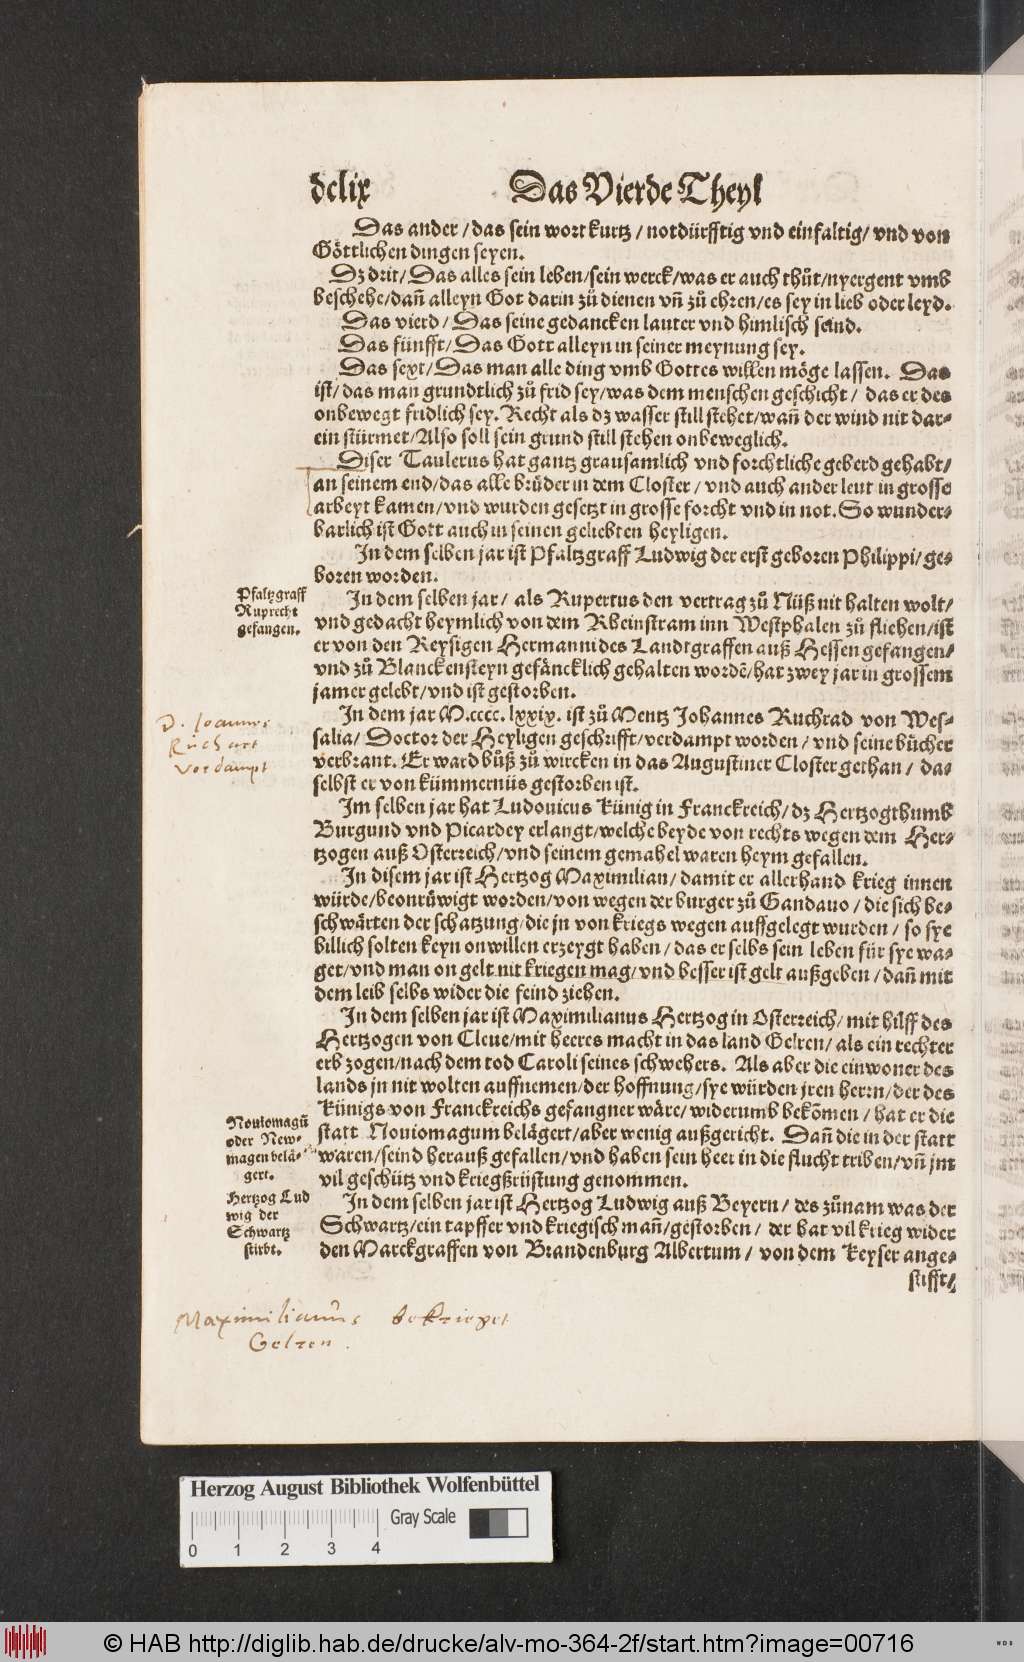 dclix Das Vierde Theyl
Das ander / das sein wort kurtz / notdürfftig vnd einfaltig / vnd von
Göttlichen dingen seyen.
Dz drit / Das alles sein leben / sein werck / was er auch thůt / nyergent vmb
beschehe / dañ alleyn Got darin zů dienen vñ zů ehren / es sey in lieb oder leyd.
Das vierd / Das seine gedancken lauter vnd himlisch seind.
Das fünfft / Das Gott alleyn in seiner meynung sey.
Das sext / Das man alle ding vmb Gottes willen möge lassen. Das
ist / das man grundtlich zů frid sey / was dem menschen geschicht / das er des
onbewegt fridlich sey. Recht als dz wasser still stehet / wañ der wind nit dar-
ein stürmet / Also soll sein grund still stehen onbeweglich.
Diser Taulerus hat gantz grausamlich vnd forchtliche geberd gehabt /
an seinem end / das alle brůder in dem Closter / vnd auch ander leut in grosse
arbeyt kamen / vnd wurden gesetzt in grosse forcht vnd in not. So wunder-
barlich ist Gott auch in seinen geliebten heyligen.
In dem selben jar ist Pfaltzgraff Ludwig der erst geboren Philippi / ge-
boren worden.
Pfaltzgraff
Ruprecht
gefangen.
In dem selben jar / als Rupertus den vertrag zů Nüß nit halten wolt /
vnd gedacht heymlich von dem Rheinstram inn Westphalen zů fliehen / ist
er von den Reysigen Hermanni des Landtgraffen auß Hessen gefangen /
vnd zů Blanckensteyn gefäncklich gehalten wordẽ / hat zwey jar in grossem
jamer gelebt / vnd ist gestorben.
D. Joannes
Ruchart
verdampt
In dem jar M.cccc.lxxix. ist zů Mentz Johannes Ruchrad von Wes-
salia / Doctor der Heyligen geschrifft / verdampt worden / vnd seine bůcher
verbrant. Er ward bůß zů wircken in das Augustiner Closter gethan / da-
selbst er von kümmernüs gestorben ist.
Im selben jar hat Ludouicus Künig in Franckreich / dz Hertzogthumb
Burgund vnd Picardey erlangt / welche beyde von rechts wegen dem Her-
tzogen auß Osterreich / vnd seinem gemahel waren heym gefallen.
In disem jar ist Hertzog Maximilian / damit er allerhand krieg innen
würde / beonrüwigt worden / von wegen der burger zů Gandauo / die sich be-
schwärten der schatzung / die jn von kriegs wegen auffgelegt wurden / so sye
billich solten keyn onwillen erzeygt haben / das er selbs sein leben für sye wa-
get / vnd man on gelt nit kriegen mag / vnd besser ist gelt außgeben / dañ mit
dem leib selbs wider die feind ziehen.
In dem selben jar ist Maximilianus Hertzog in Osterreich / mit hilff des
Hertzogen von Cleue / mit heeres macht in das land Gelren / als ein rechter
erb zogen / nach dem tod Caroli seines schwehers. Als aber die einwoner des
lands jn nit wolten auffnemen / der hoffnung / sye würden jren herrn / der des
Künigs von Franckreichs gefangner wäre / widerumb bekõmen / hat er die
statt Nouiomagum belägert / aber wenig außgericht. Dañ die in der statt
waren / seind herauß gefallen / vnd haben sein heer in die flucht triben / vñ jm
vil geschütz vnd kriegßrüstung genommen.
Nouiomagũ
oder New-
magen belä-
gert.
Hertzog Lud
wig der
Schwartz
stirbt.
In dem selben jar ist Hertzog Ludwig auß Beyern / des zůnam was der
Schwartz / ein tapffer vnd kriegisch mañ / gestorben / der hat vil krieg wider
den Marckgraffen von Brandenburg Albertum / von dem Keyser ange-
stifft /
Maximilianus bekrieget
Gelren.
Herzog August Bibliothek Wolfenbüttel
Gray Scale
0 1 2 3 4
© HAB http://diglib.hab.de/drucke/alv-mo-364-2f/start.htm?image=00716